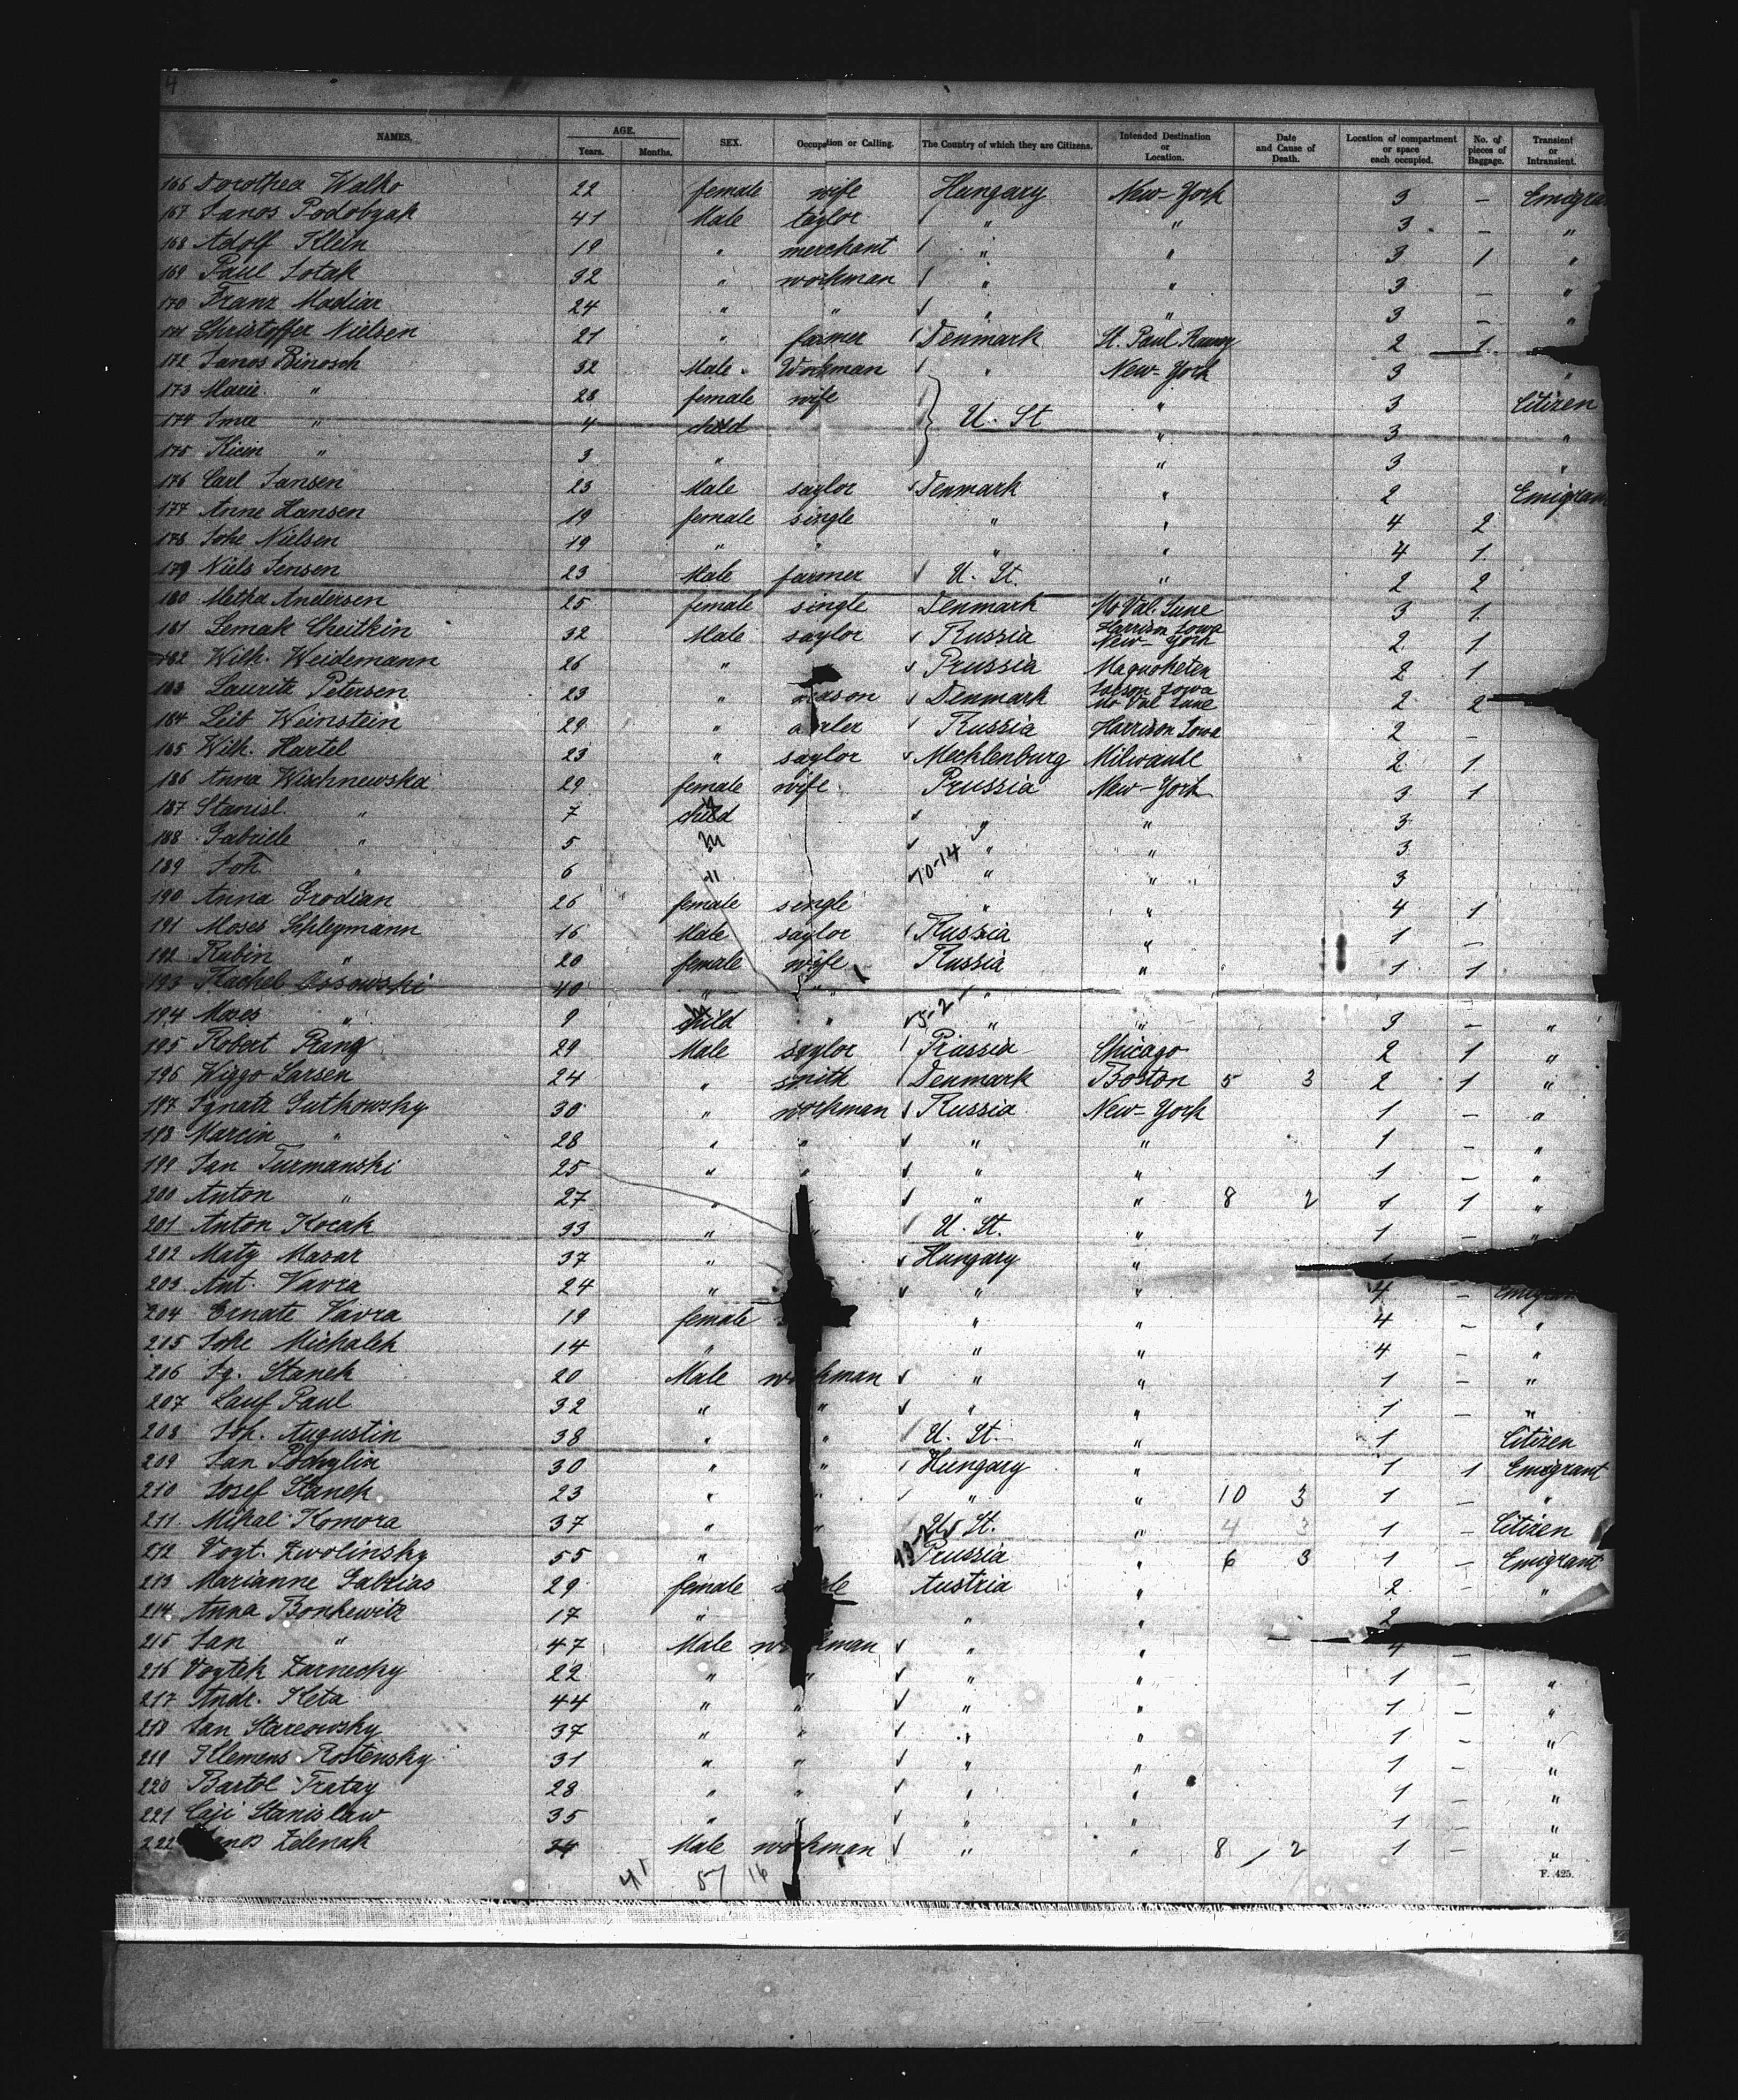 4
NAMES. AGE. Years. Months. SEX. Occupation or Calling. The Country of which they are Citizens. Intended Destination or Location. Date and Cause of Death. Location of compartment or space each occupied. No. of pieces of Baggage. Transient or Intransient.
166 Dorothea Walko 22 female wife Hungary New-York 3 –
167 Janos Podobyak 41 Male taylor " " 3 – "
168 Adolf Klein 19 " merchant " " 3 1 "
169 Paul Sotak 32 " workman " " 3 – "
170 Franz Madiar 24 " " " " 3 – "
171 Christoffer Nielsen 21 " farmer Denmark St. Paul 2 1
172 Janos Binosch 32 Male Workman " New-York 3 "
173 Marie " 28 female wife U. St " 3 Citizen
174 Imre " 4 child " 3 "
175 " 3 " " 3 "
176 Carl Jansen 23 Male saylor Denmark " 2 Emigran
177 Anne Hansen 19 female single " " 4 2
178 Nielsen 19 " " " " 4 1
179 Niels Jensen 23 Male farmer U. St. " 2 2
180 Metha Andersen 25 female single Denmark Mo Val. June Harrison Iowa 3 1
181 Lemak Cheitkin 32 Male saylor Russia New-York 2 1
182 Wilh. Weidemann 26 " Prussia Maquoketen Iowa 2 1
183 Lauritz Petersen 23 " mason Denmark Mo Val June 2 2
184 Leib Weinstein 29 " Russia Harrison Iowa 2 –
185 Wilh. Hartel 23 " saylor Mecklenburg Milwaule 2 1
186 Anna Wischnewska 29 female wife Prussia New-York 3 1
187 Stanisl. " 7 child " " 3
188 Gabrielle " 5 M " " 3
189 Joh. " 6 " 10-14 " " 3
190 Anna Grodian 26 female single " " 4 1
191 Moses Schleymann 16 Male saylor Russia " 1 –
192 Rubin " 20 female wife Russia " 1 1
193 Rachel Ossowski 40 " " "
194 Moses " 9 child " " " 3 – "
195 Robert Prang 29 Male saylor Prussia Chicago 2 1 "
196 Wiggo Larsen 24 " smith Denmark Boston 5 3 2 1 "
197 Ignatz Gutkowsky 30 " workman Russia New-York 1 – "
198 Marcin " 28 " " " " 1 – "
199 Jan Turmanski 25 " " " " 1 – "
200 Anton " 27 " " " 8 2 1 1 "
201 Anton Kocak 33 " " U. St. " 1 – "
202 Maty Masar 37 " Hungary "
203 Ant. Vavra 24 " " " 4 –
204 Ernate Vavra 19 female " " 4 – "
205 Michalek 14 " " " 4 – "
206 Ig. Stanek 20 Male workman " " 1 – "
207 Lauf Paul 32 " " " " 1 – "
208 Joh. Augustin 38 " " U. St. " 1 Citizen
209 Jan Pochylin 30 " " Hungary " 1 1 Emigrant
210 Josef Stanek 23 " " " " 10 3 1 – "
211 Mihal Komora 37 " " U. St. " 4 3 1 – Citizen
212 Voyt. Zwolinsky 55 " Prussia " 6 3 1 – Emigrant
213 Marianne Gabrias 29 female Austria " 2 – "
214 Anna Bonkewitz 17 " " " 2
215 Jan " 47 Male workman " " 4 –
216 Voytek Zarnecky 22 " " " " 1 – "
217 Andr. Keta 44 " " " " 1 – "
218 Jan Starcowsky 37 " " " " 1 – "
219 Klemens Rostensky 31 " " " " 1 – "
220 Bartol Fratay 28 " " " " 1 – "
221 Caji Stanislaw 35 " " " " 1 – "
222 Zelenak 24 Male workman " " 8 2 1 – "
41 57 16
F. 425.